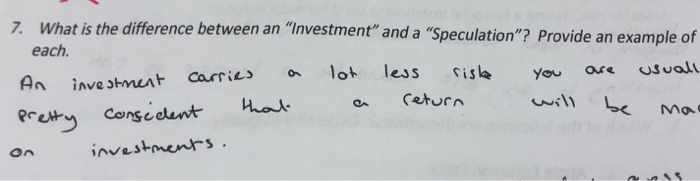 7. What is the difference between an "Investment" and a "Speculation"? Provide an example of
each.
An investment carries a lot less risk you are usuall
pretty conscident that a return will be ma
on investments.